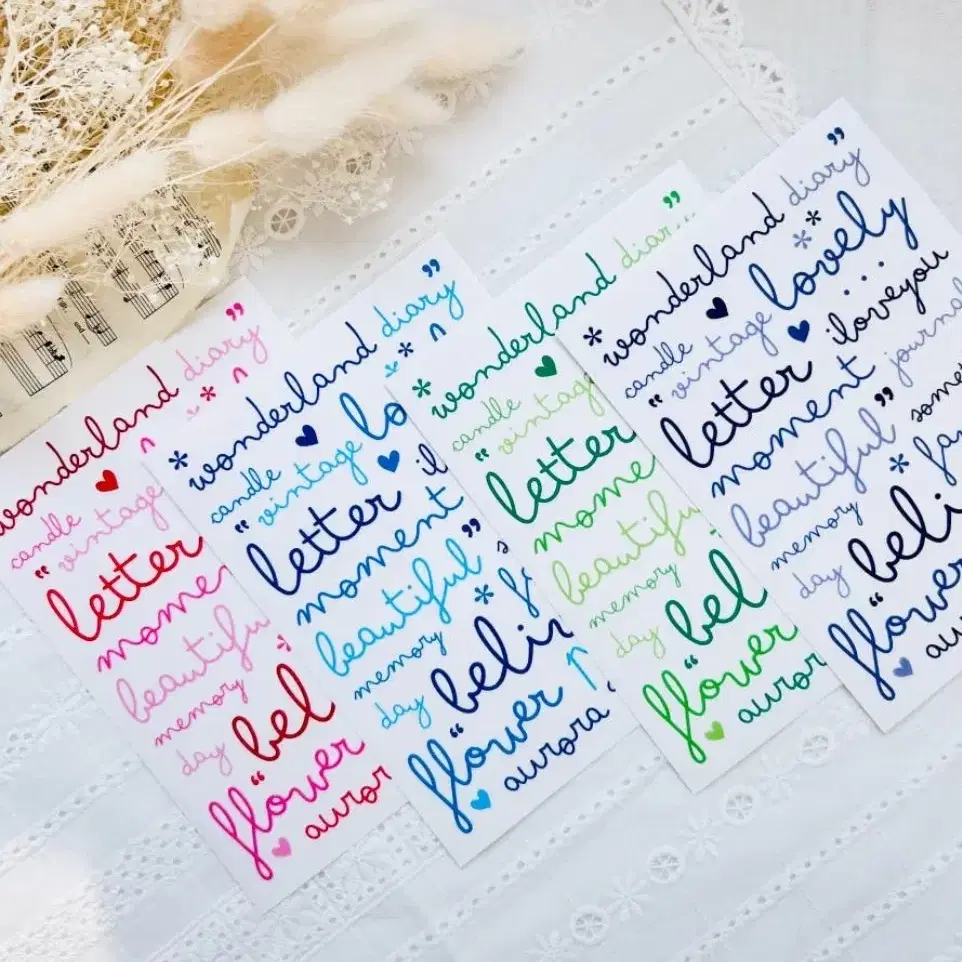 wonderland diary ”
candle
“ vintage
letter
mome
beautifu
memory
day
bel
“
flower
auror
wonderland diary ”
candle
“ vintage lo
letter il
moment
beautiful ”
memory
day
beli
“
flower
aurora
wonderland diar ”
candle
“ vintage
letter
mome
beautifu
memory
day
bel
“
flower
auror
wonderland diary ”
candle lovely
“ vintage
letter iloveyou
moment journal
beautiful ”
memory
day
beli
“
flower